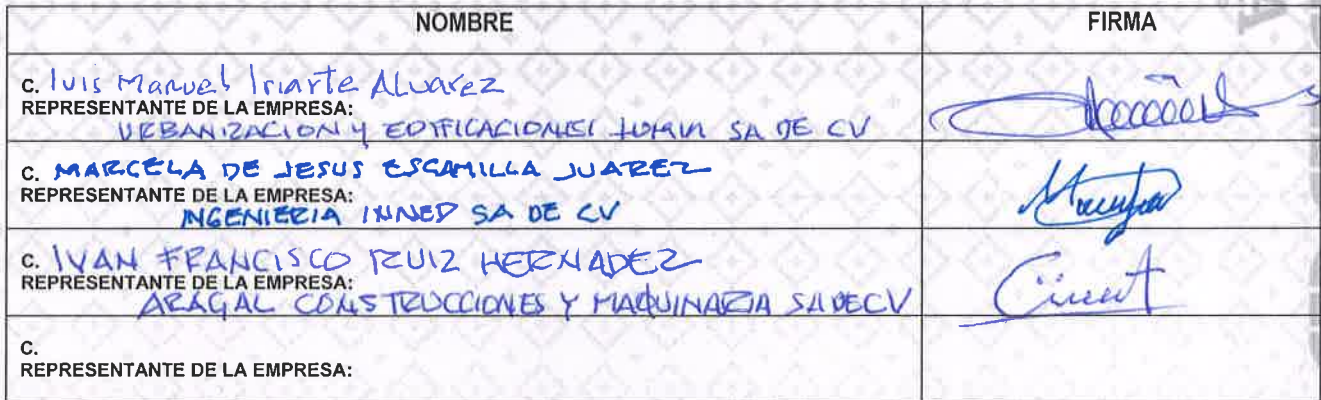 NOMBRE FIRMA
C. luis Manuel Iriarte Alvarez
REPRESENTANTE DE LA EMPRESA:
URBANIZACION Y EDIFICACIONES SA DE CV
C. MARCELA DE JESUS ESCAMILLA JUAREZ
REPRESENTANTE DE LA EMPRESA:
INGENIERIA INNED SA DE CV
C. IVAN FRANCISCO RUIZ HERNADEZ
REPRESENTANTE DE LA EMPRESA:
ARAGAL CONSTRUCCIONES Y MAQUINARIA SA DE CV
C.
REPRESENTANTE DE LA EMPRESA: